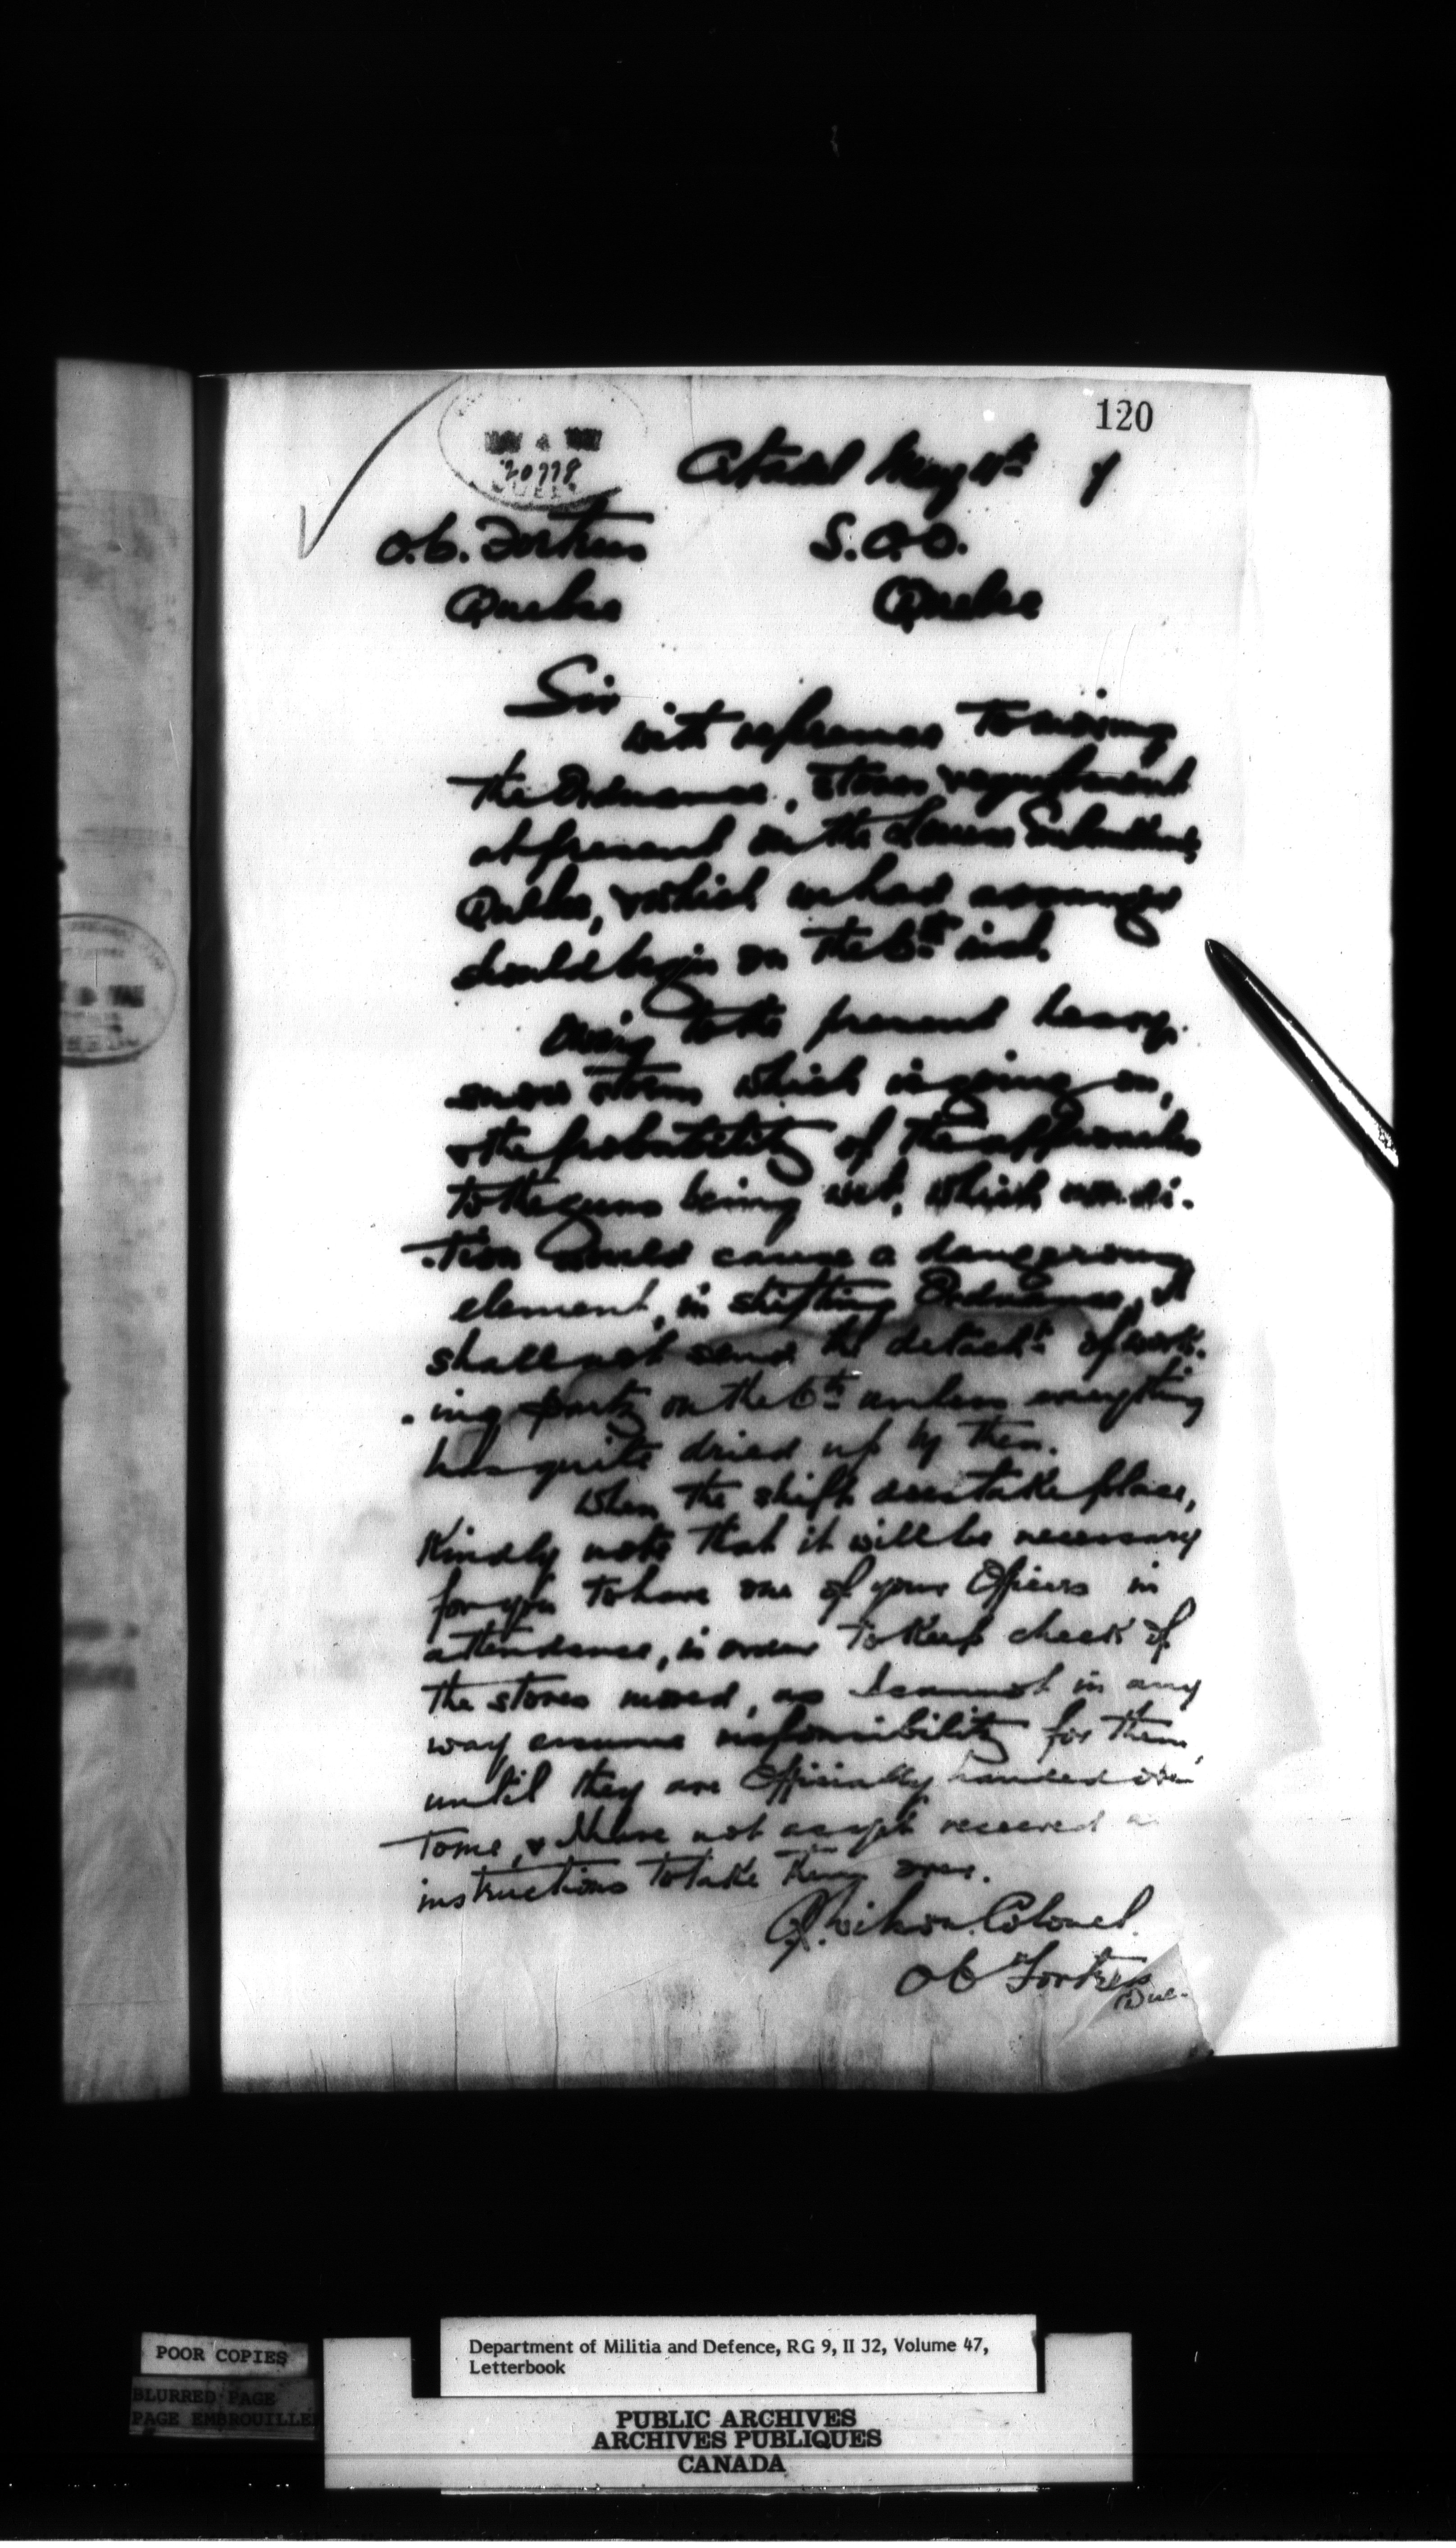 120
MAY 4
20778
Citadel May 4th 7
O.C. Fortress S.O.O.
Quebec Quebec
Sir
with reference to moving
the Ordnance, Stores & equipment
at present in the Lower
Quebec, & which we had arranged
should begin on the 6th inst.
Owing to the present heavy
snow storm which is going on,
& the probability of the approaches
to the guns being wet, which condi-
-tion would cause a dangerous
element, in shifting Ordnance, I
shall not send the detacht. of work-
-ing party on the 6th unless everything
has quite dried up by then.
When the shift does take place,
Kindly note that it will be necessary
for you to have one of your Officers in
attendance, in order to keep check of
the stores moved, as I cannot in any
way assume responsibility for them,
until they are Officially handed over
to me, & I have not as yet received
instructions to take them over.
Wilson. Colonel.
OC Fortress
Que.
POOR COPIES
BLURRED PAGE
PAGE EMBROUILLEE
Department of Militia and Defence, RG 9, II J2, Volume 47,
Letterbook
PUBLIC ARCHIVES
ARCHIVES PUBLIQUES
CANADA